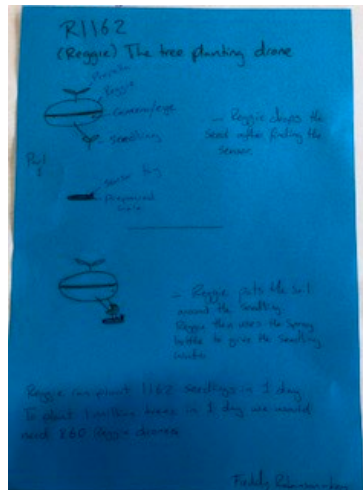 R1162
(Reggie) The tree planting drone
Reggie
Camera/eye
Seedling
– Reggie drops the
seed after finding the
sensor.
Part
Sensor
Prepared
hole
– Reggie puts the soil
around the seedling.
Reggie then uses the spray
bottle to give the seedling
water
Reggie can plant 1162 seedlings in 1 day
To plant 1 million trees in 1 day we would
need 860 Reggie drones
Freddy